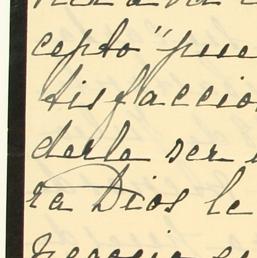 cepto" pue
tisfaccio
derle ser
ra Dios le